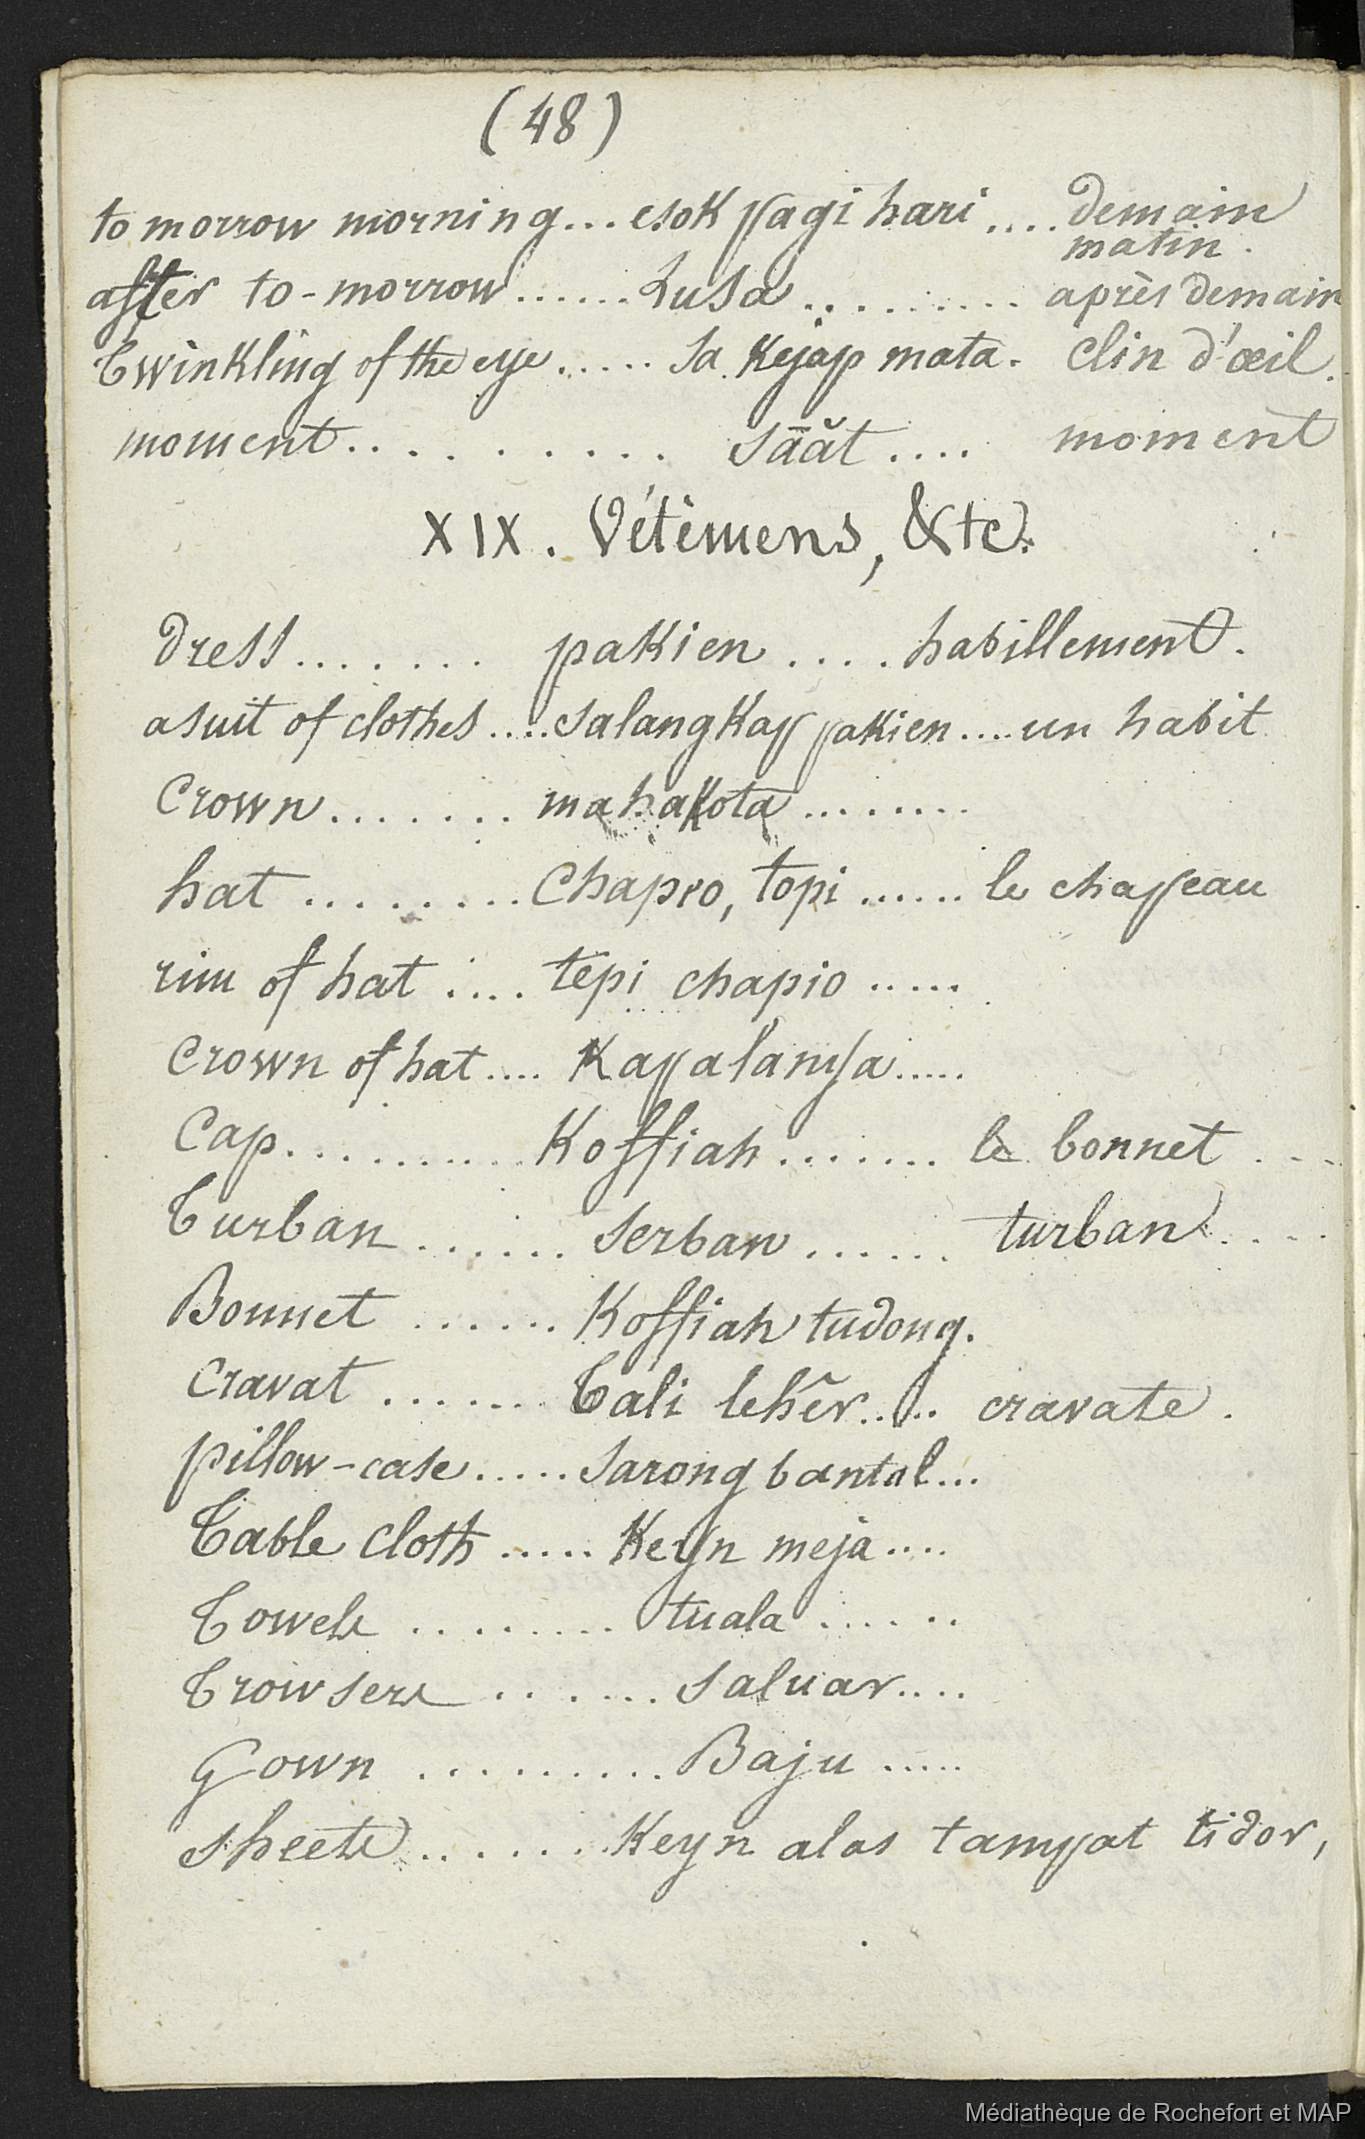 (48)
to morrow morning... esok pagi hari .... demain
matin.
after to-morrow ...... Lusa ......... après demain
Twinkling of the eye ..... sa kejap mata. clin d'œil.
moment .......... sāăt .... moment
XIX. Vétêmens, &tc.
Dress ....... pakien .... habillement.
a suit of clothes ..... salangkap pakien .... un habit
Crown ....... mahakota ........
hat ......... Chapeo, topi ...... le chapeau
rim of hat .... tepi chapio .....
Crown of hat .... Kapalanya .....
Cap .......... Koffiah ....... le bonnet ...
Turban ....... serban ...... turban ....
Bonnet ...... Koffiah tudong.
Cravat ....... Tali lehêr .... cravate.
pillow-case ..... Sarong bantal ...
Table cloth ..... Keyn meja ....
Towels ......... tuala ......
Trowsers ...... saluar ....
Gown ......... Baju .....
sheets ....... Keyn alas tampat tidor,
Médiathèque de Rochefort et MAP